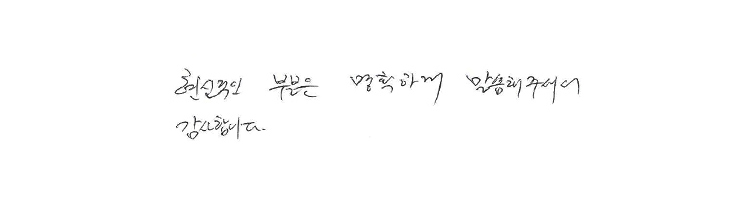 현실적인 부분은 명확하게 말씀해주셔서
감사합니다.